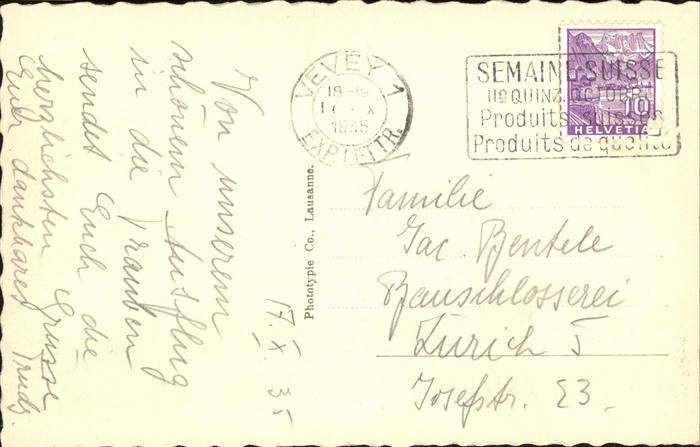 Von unserem
schönem Ausflug
in die Trauben
sendet Euch die
herzlichsten Grüsse
Euer dankbares Trudi.
17. X. 35
Phototypie Co., Lausanne.
VEVEY 1
18-19
17. X
1935
EXP. LETTR.
SEMAINE SUISSE
IIe QUINZ. OCTOBRE
Produits suisses
Produits de qualité
10
HELVETIA
Familie
Jac. Bentele
Bauschlosserei
Zürich 5
Josefstr. 23.